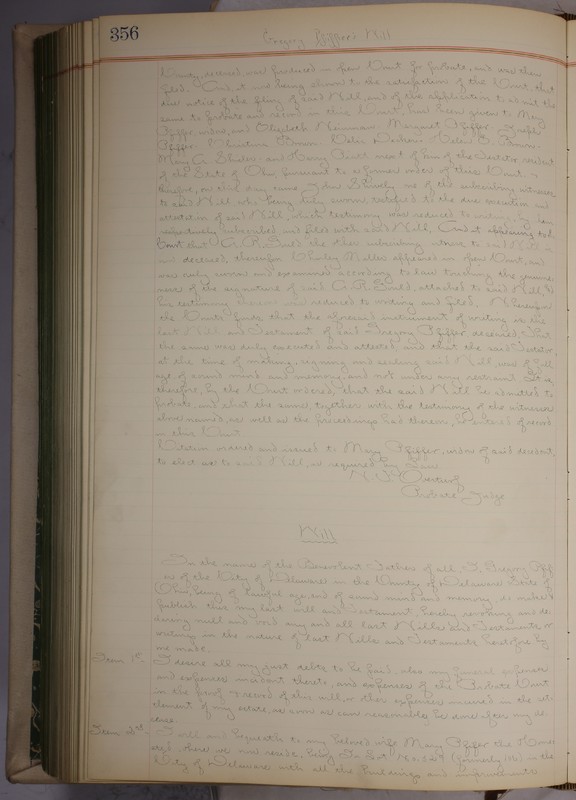 356
Gregory Pfiffer's Will
County, deceased was produced in open Court for probate, and was then
filed. And, it now being shown to the satisfaction of the Court, that
due notice of the filing of said Will, and of the application to admit the
same to probate and record in this Court, has been given to Mary
Pfiffer widow, and Elizabeth Margaret Pfiffer
Pfiffer Christian Brown
Mary A. and Harry next of kin of the testator, resident
of the State of Ohio, pursuant to a former order of this Court
therefore, on this day came John one of the subscribing witnesses
to said Will who, being duly sworn testified to the due execution and
attestation of said Will, which testimony was reduced to writing, by him
respectively subscribed and filed with said Will, And it appearing to the
Court that A. R. Gould the other subscribing witness to said Will
is now deceased, thereupon Charley Miller appeared in open Court, and
was duly sworn and examined according to law touching the genuine-
ness of the signature of said A. R. Gould, attached to said Will, &
his testimony was reduced to writing and filed. Whereupon
the Court finds that the aforesaid instrument of writing is the
last Will and Testament of said Gregory Pfiffer deceased, that
the same was duly executed and attested, and that the said Testator
at the time of making, signing and sealing said Will, was of full
age of sound mind and memory, and not under any restraint. It is,
therefore, by the Court ordered, that the said Will be admitted to
probate, and that the same, together with the testimony of the witnesses
above named, as well as the proceedings had therein, be entered of record
in this Court.
Citation ordered and issued to Mary Pfiffer, widow of said decedent,
to elect as to said Will, as required by Law
Probate Judge
Will
In the name of the Benevolent Father of all, I, Gregory Pfif-
fer of the City of Delaware in the County of Delaware State of
Ohio, being of lawful age, and of sound mind and memory, do make &
publish this my last will and Testament, hereby revoking and de-
claring null and void any and all last Wills and Testaments or
writing in the nature of last Wills and Testaments heretofore by
me made.
Item 1st. I desire all my just debts to be paid, also my funeral expenses
and expenses incident thereto, and expenses of the Probate Court
in the proof & record of this will, or other expenses incurred in the set-
tlement of my estate, as soon as can reasonably be done after my de-
cease.
Item 2nd I will and bequeath to my beloved wife Mary Pfiffer the Home-
stead where we now reside, being In Lot No. (formerly ) in the
City of Delaware with all the buildings and improvements